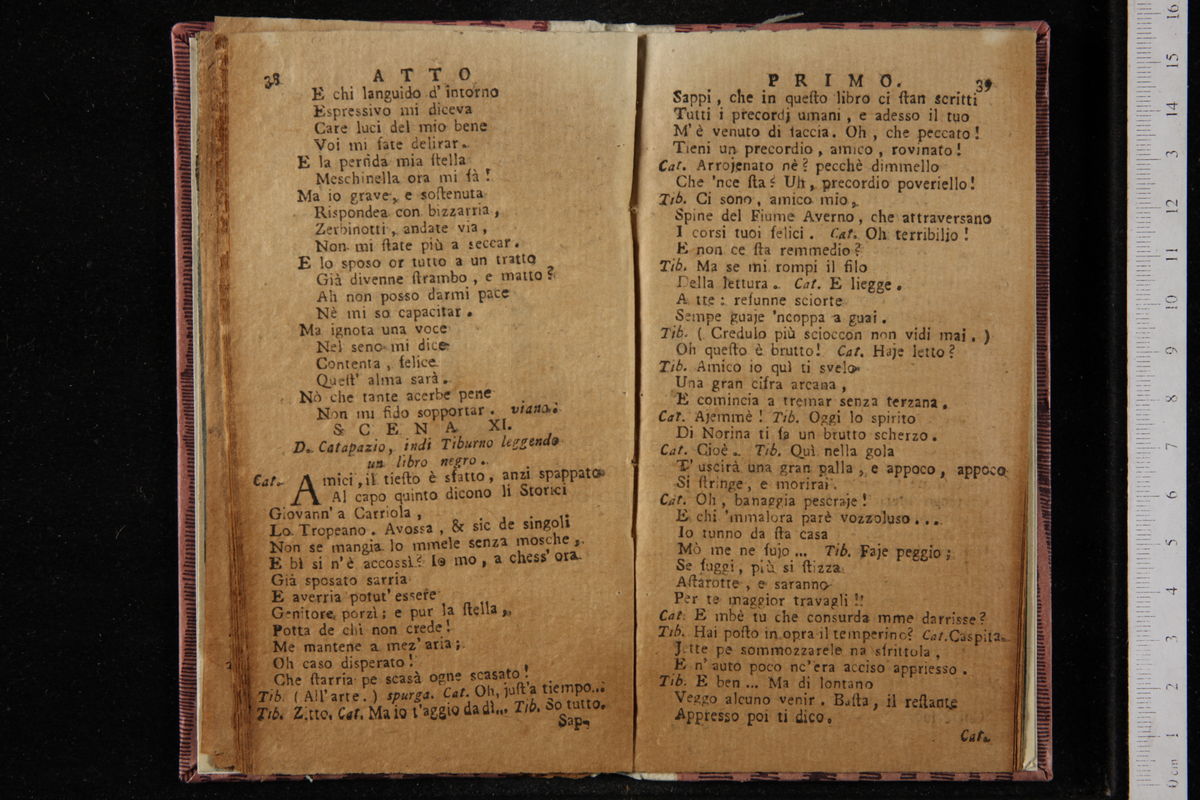 38 ATTO
E chi languido d' intorno
Espressivo mi diceva
Care luci del mio bene
Voi mi fate delirar.
E la perfida mia ſtella
Meſchinella ora mi fà!
Ma io grave, e ſoſtenuta
Rispondea con bizzarria,
Zerbinotti, andate via,
Non mi ſtate più a seccar.
E lo sposo or tutto a un tratto
Già divenne ſtrambo, e matto?
Ah non posso darmi pace
Nè mi so capacitar.
Ma ignota una voce
Nel seno mi dice
Contenta, felice
Queſt' alma sarà.
Nò che tante acerbe pene
Non mi fido sopportar. viano.
SCENA XI.
D. Catapazio, indi Tiburno leggendo
un libro negro.
Cat. Amici, il tieſto è sfatto, anzi spappato
Al capo quinto dicono li Storici
Giovann' a Carriola,
Lo Tropeano. Avossa, & sic de singoli
Non se mangia lo mmele senza mosche,
E bì si n'è accossì? Io mo, a chess' ora
Già sposato sarria
E averria potut' essere
Genitore porzì; e pur la ſtella,
Potta de chi non crede!
Me mantene a mez' aria;
Oh caso disperato!
Che ſtarria pe scasà ogne scasato!
Tib. (All'arte.) spurga. Cat. Oh, juſt'a tiempo...
Tib. Zitto. Cat. Ma io t'aggio da dì... Tib. So tutto.
Sap-
PRIMO. 39
Sappi, che in queſto libro ci ſtan scritti
Tutti i precordj umani, e adesso il tuo
M'è venuto di faccia. Oh, che peccato!
Tieni un precordio, amico, rovinato!
Cat. Arrojenato nè? pecchè dimmello
Che 'nce ſta? Uh, precordio poveriello!
Tib. Ci sono, amico mio,
Spine del Fiume Averno, che attraversano
I corsi tuoi felici. Cat. Oh terribilio!
E non ce ſta remmedio?
Tib. Ma se mi rompi il filo
Della lettura. Cat. E liegge.
A tte: refunne sciorte
Sempe guaje 'ncoppa a guai.
Tib. (Credulo più scioccon non vidi mai.)
Oh queſto è brutto! Cat. Haje letto?
Tib. Amico io quì ti svelo
Una gran cifra arcana,
E comincia a tremar senza terzana.
Cat. Ajemmè! Tib. Oggi lo spirito
Di Norina ti fa un brutto scherzo.
Cat. Cioè. Tib. Quì nella gola
T' uscirà una gran palla, e appoco, appoco
Si ſtringe, e morirai.
Cat. Oh, banaggia pescraje!
E chi 'mmalora parè vozzoluso...
Io tunno da ſta casa
Mò me ne fujo... Tib. Faje peggio;
Se fuggi, più si ſtizza
Aſtarotte, e saranno
Per te maggior travagli!!
Cat. E mbè tu che consurda mme darrisse?
Tib. Hai poſto in opra il temperino? Cat. Caspita.
Jette pe sommozzarele na sfrittola,
E n' auto poco nc'era acciso appriesso.
Tib. E ben... Ma di lontano
Veggo alcuno venir. Baſta, il reſtante
Appresso poi ti dico.
Cat.
0 cm 1 2 3 4 5 6 7 8 9 10 11 12 13 14 15 16